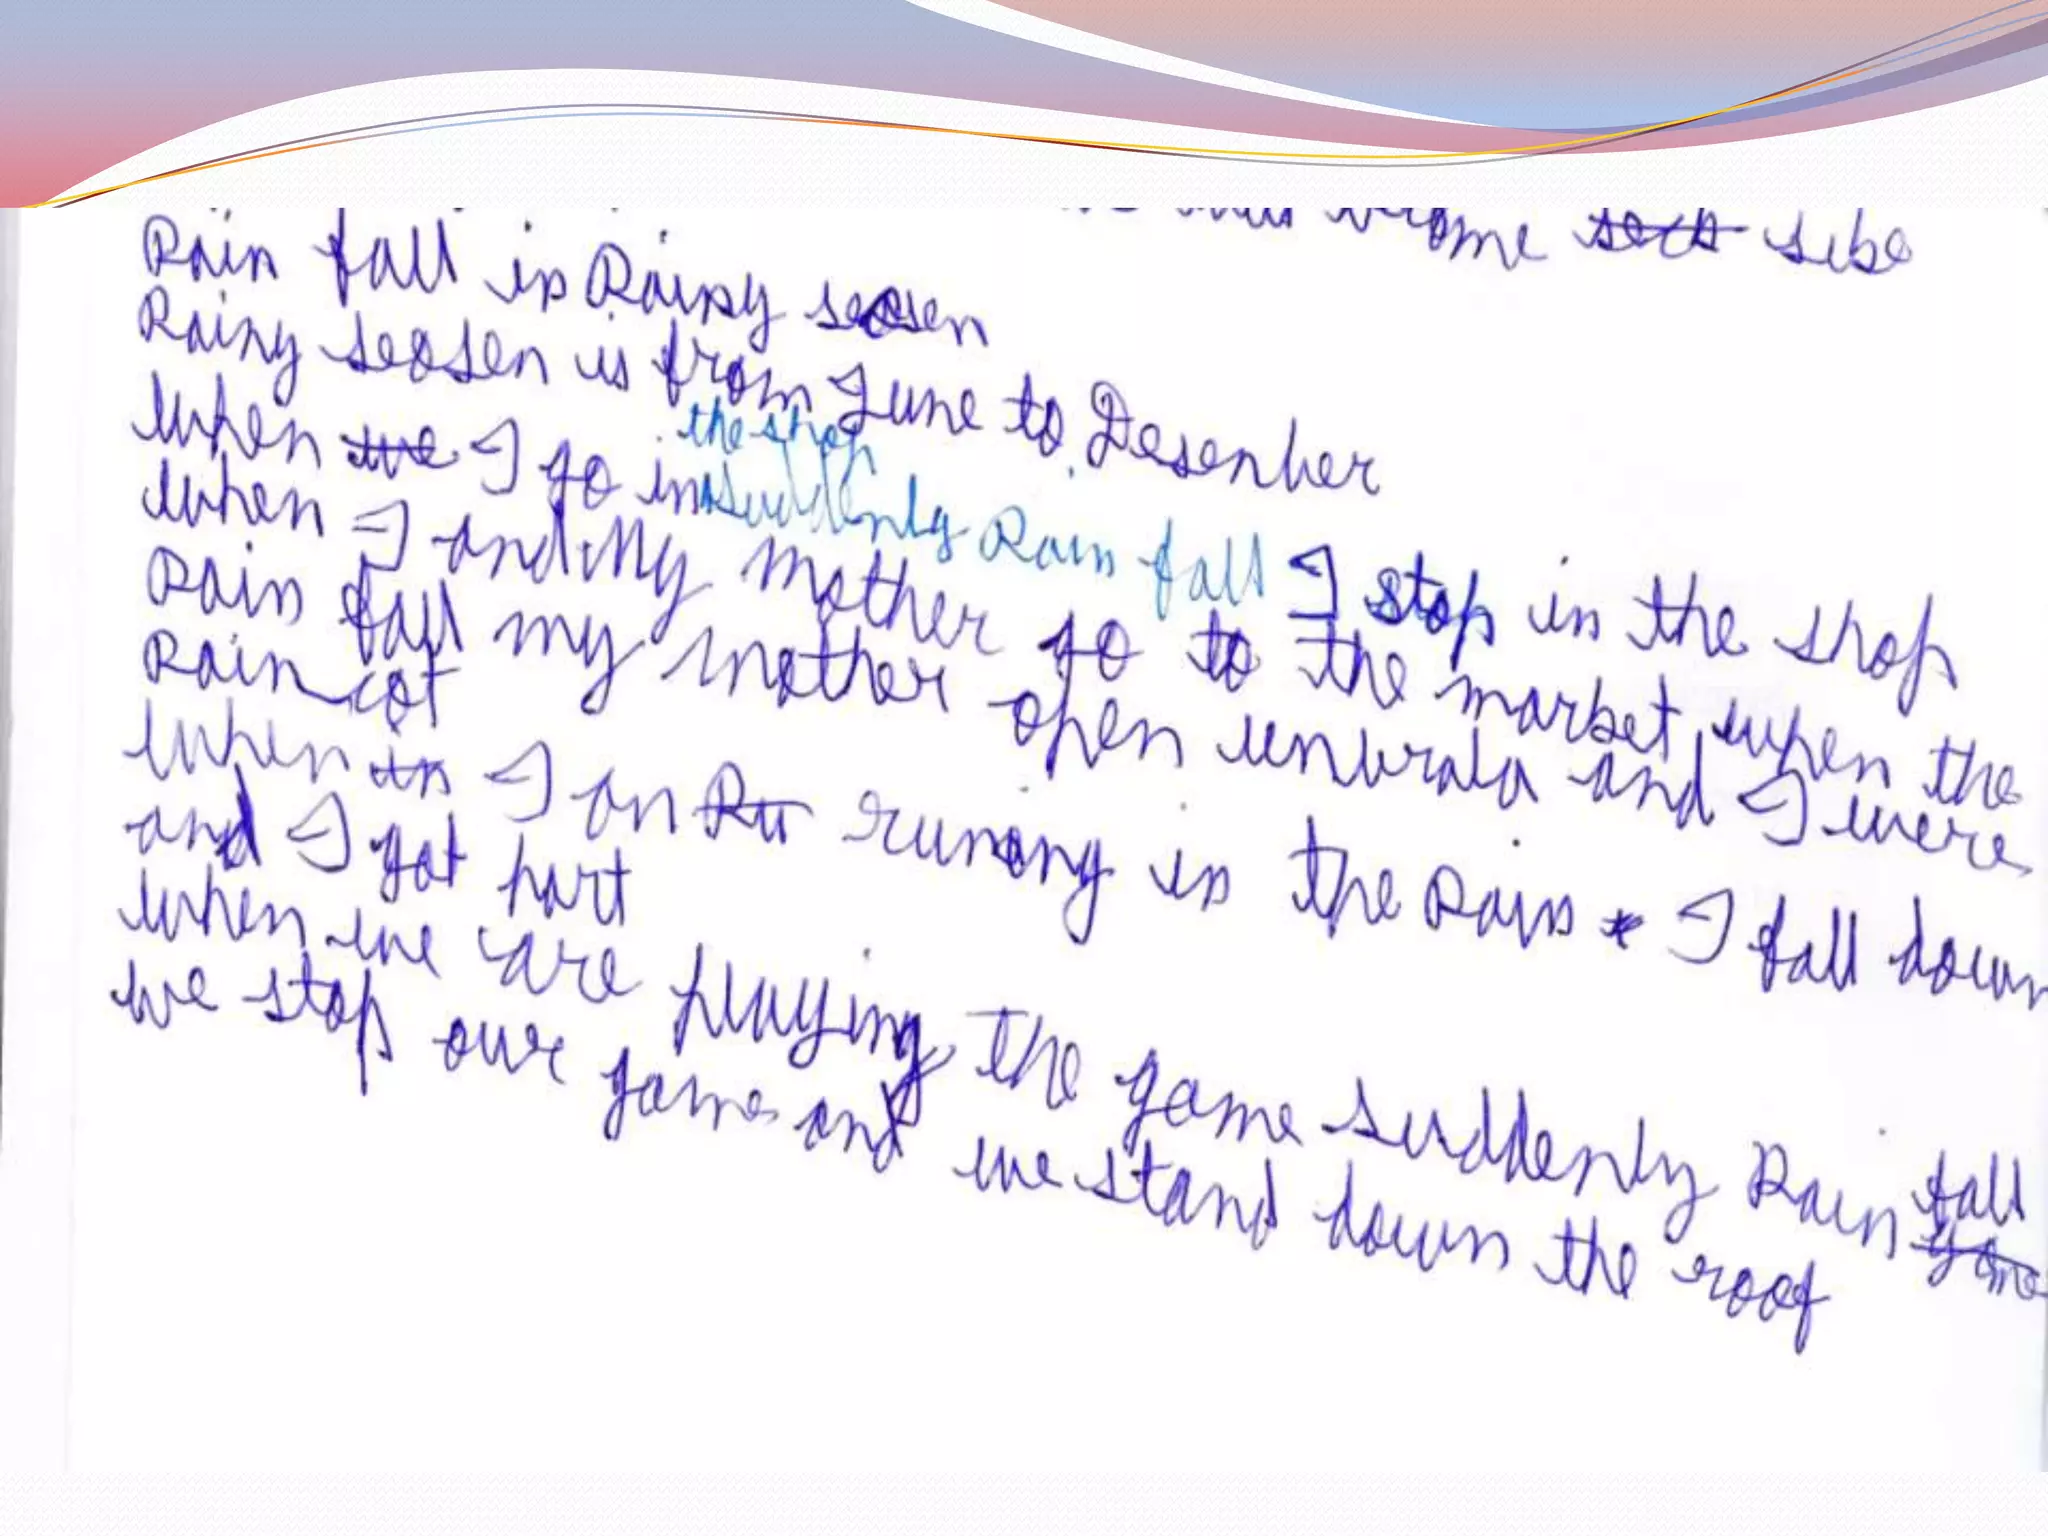 become secs sike
Rain fall in Rainy seosen
Rainy seosen is from June to Desenber
the shop
When the I go in suddenly Rain fall I stop in the shop
When I and My mother go to the market when the
Rain fall my mother open unbrala and I were
Raincot
When in I an Ru runing in the Rain I fall down
and I got hart
When we are playing the game suddenly Rain fall
we stop our game and we stand down the roof game